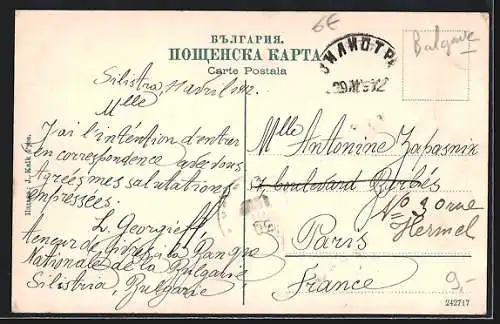 6E
БЪЛГАРИЯ.
ПОЩЕНСКА КАРТА
Carte Postala
Bulgarie
СИЛИСТРА
Silistra, 11 avril 1912.
Mlle
J'ai l'intention d'entrer
en correspondence avec vous
Agréés mes salutations
empressées.
L. Georgieff
teneur de livres à la Banque
Nationale de la Bulgarie
Silistria, Bulgarie
Mlle Antonine Zapasnik
7 boulevard Barbès
No 3 rue
Hermel
Paris
France
9.-
242717